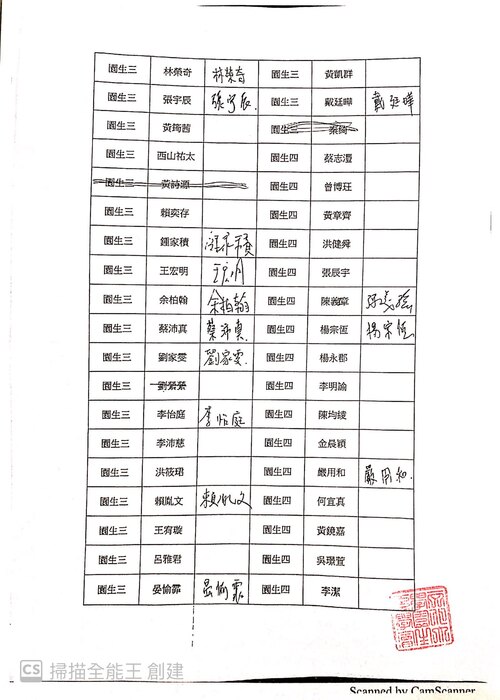 園生三 林榮奇 林榮奇 園生三 黃凱群
園生三 張宇辰 張宇辰 園生三 戴廷曄 戴廷曄
園生三 黃筠茜 園生三
園生三 西山祐太 園生四 蔡志灃
園生三 黃詩源 園生四 曾博玨
園生三 賴奕存 園生四 黃章齊
園生三 鍾家積 鍾家積 園生四 洪健舜
園生三 王宏明 王宏明 園生四 張辰宇
園生三 余柏翰 余柏翰 園生四 陳義章
園生三 蔡沛真 蔡沛真 園生四 楊宗恆 楊宗恆
園生三 劉家雯 劉家雯 園生四 楊永郡
園生三 園生四 李明諭
園生三 李怡庭 李怡庭 園生四 陳均綾
園生三 李沛慈 園生四 金晨穎
園生三 洪筱珺 園生四 嚴用和 嚴用和
園生三 賴胤文 賴胤文 園生四 何宜真
園生三 王宥璇 園生四 黃鏡嘉
園生三 呂雅君 園生四 吳璟萱
園生三 晏愉霏 晏愉霏 園生四 李潔
CS 掃描全能王 創建
Scanned by CamScanner